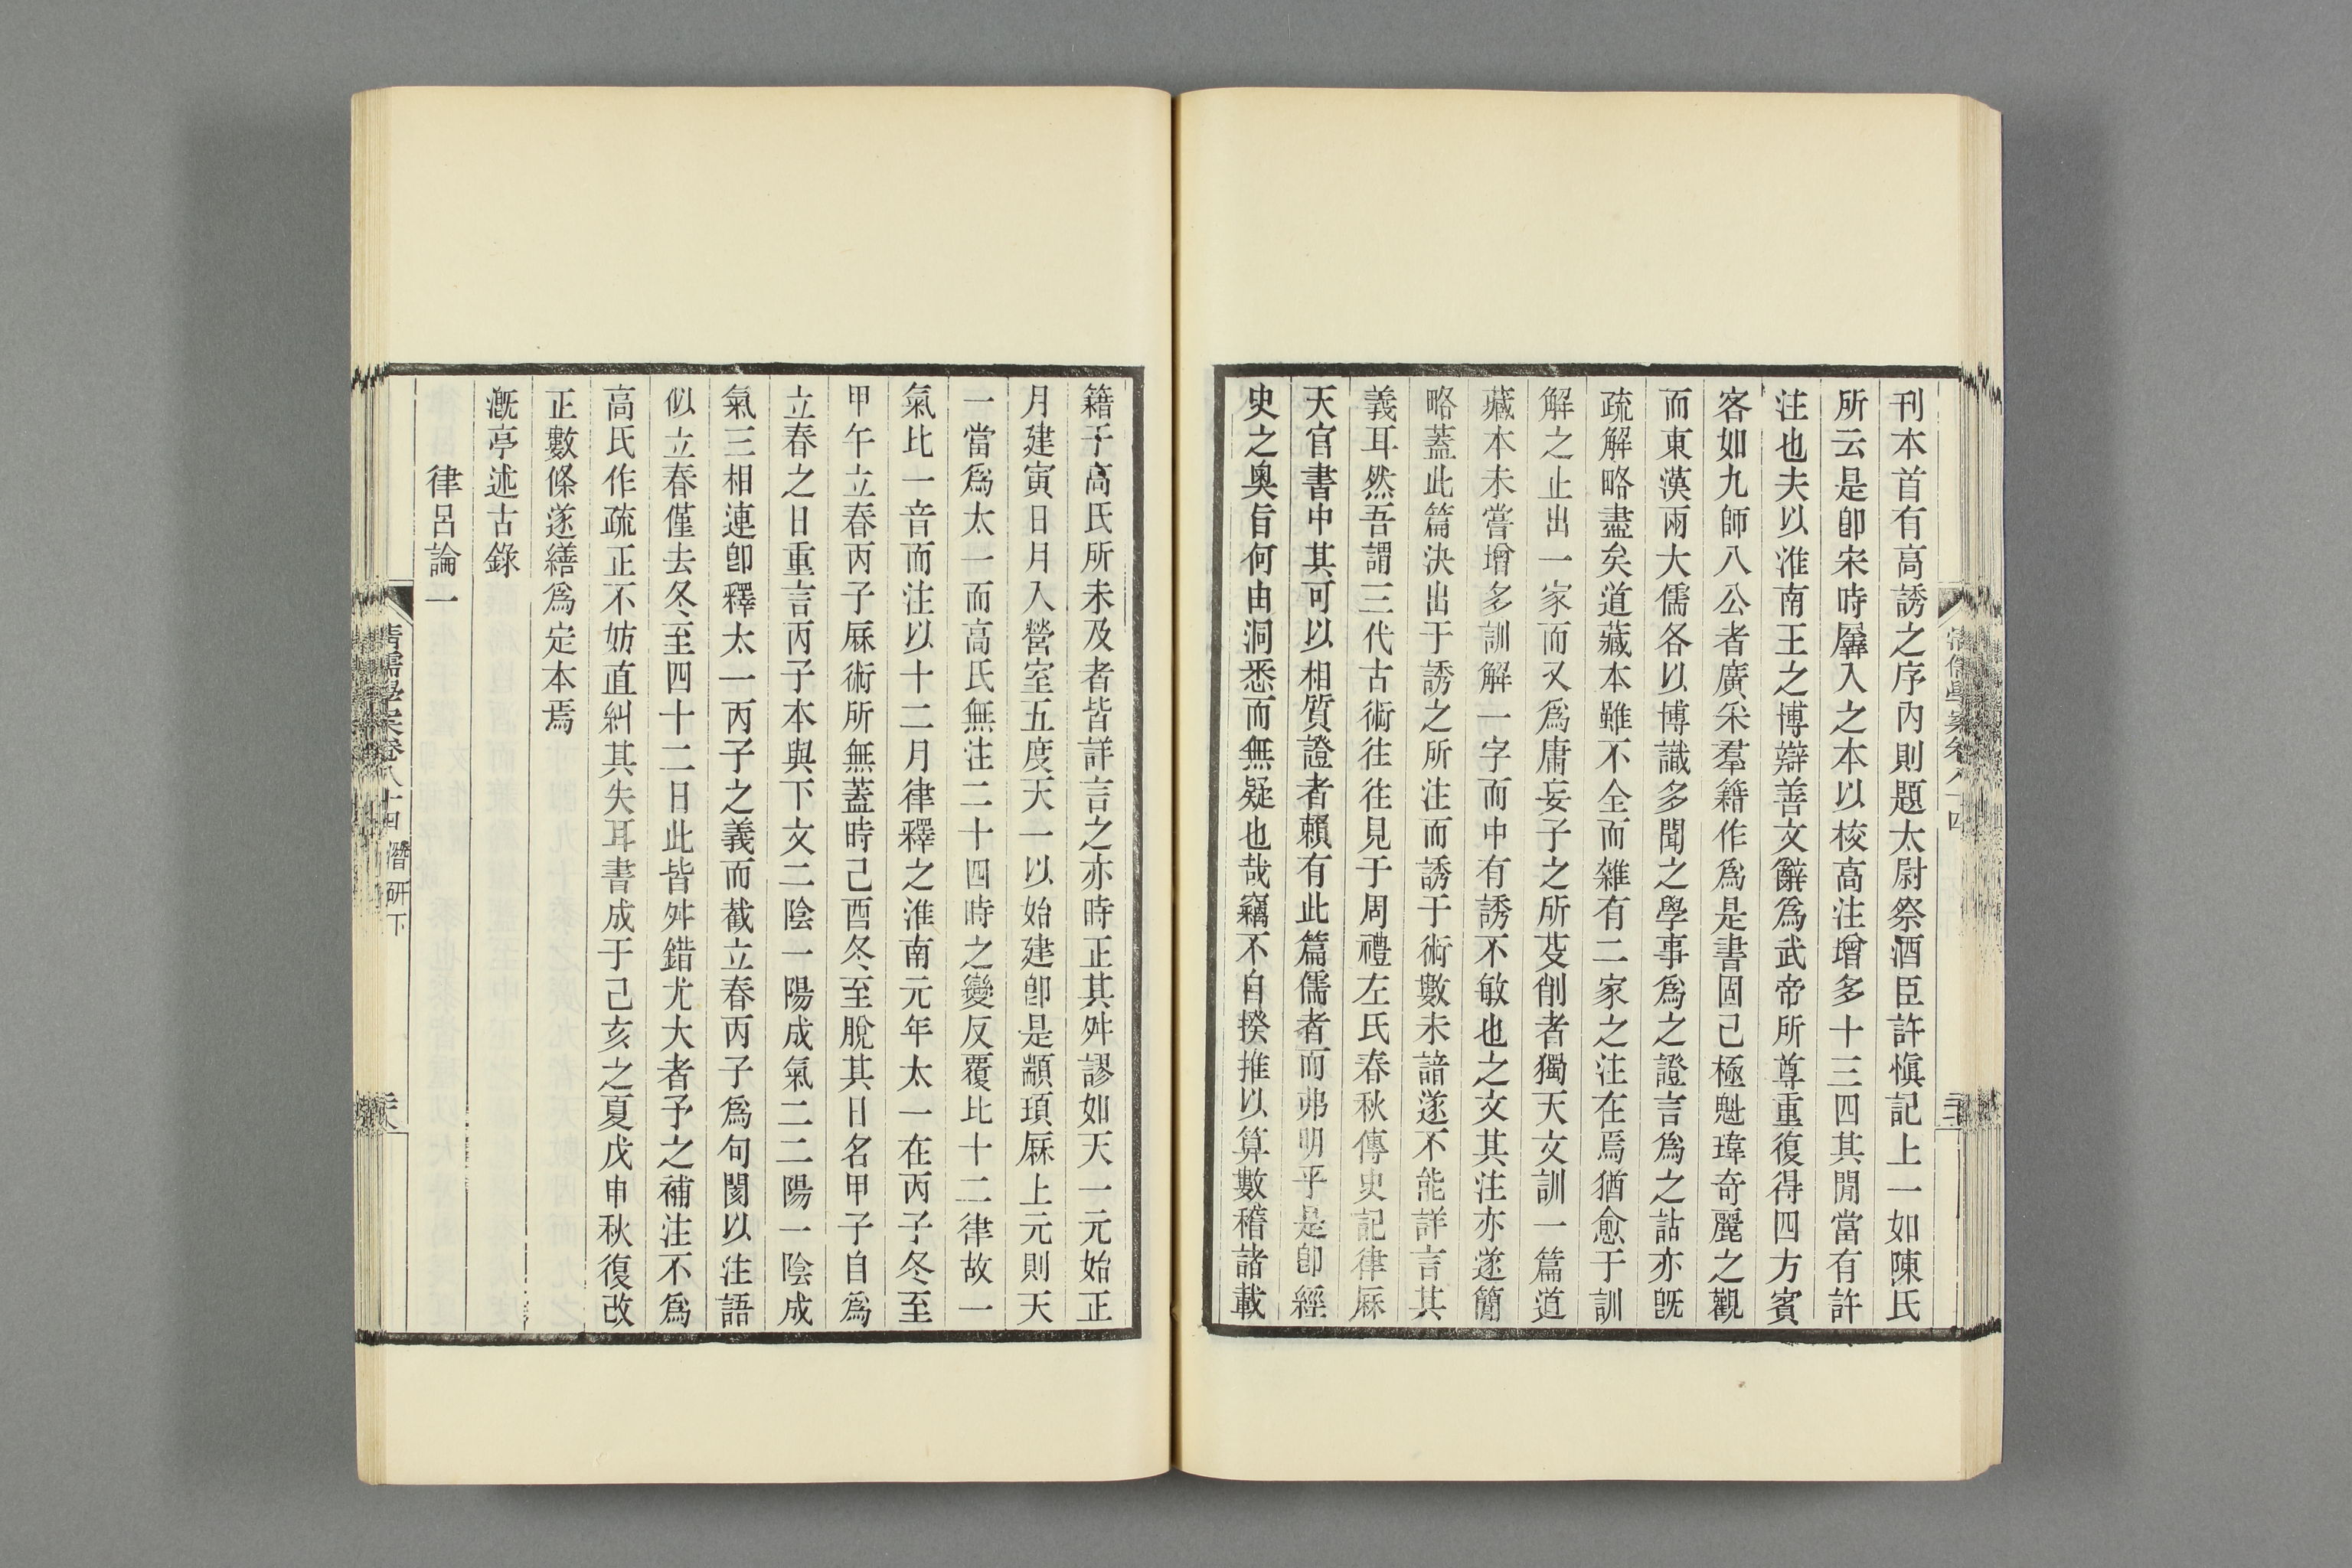 刊本首有高誘之序內則題太尉祭酒臣許愼記上一如陳氏
所云是卽宋時羼入之本以校高注增多十三四其閒當有許
注也夫以淮南王之博辯善文辭爲武帝所尊重復得四方賓
客如九師八公者廣采羣籍作爲是書固已極魁瑋奇麗之觀
而東漢兩大儒各以博識多聞之學事爲之證言爲之詁亦旣
疏解略盡矣道藏本雖不全而雜有二家之注在焉猶愈于訓
解之止出一家而又爲庸妄子之所芟削者獨天文訓一篇道
藏本未嘗增多訓解一字而中有誘不敏也之文其注亦遂簡
略蓋此篇決出于誘之所注而誘于術數未諳遂不能詳言其
義耳然吾謂三代古術往往見于周禮左氏春秋傳史記律厤
天官書中其可以相質證者賴有此篇儒者而弗明乎是卽經
史之奧旨何由洞悉而無疑也哉竊不自揆推以算數稽諸載
籍于高氏所未及者皆詳言之亦時正其舛謬如天一元始正
月建寅日月入營室五度天一以始建卽是顓頊厤上元則天
一當爲太一而高氏無注二十四時之變反覆比十二律故一
氣比一音而注以十二月律釋之淮南元年太一在丙子冬至
甲午立春丙子厤術所無蓋時己酉冬至脫其日名甲子自爲
立春之日重言丙子本與下文二陰一陽成氣二二陽一陰成
氣三相連卽釋太一丙子之義而截立春丙子爲句闋以注語
似立春僅去冬至四十二日此皆舛錯尤大者予之補注不爲
高氏作疏正不妨直糾其失耳書成于己亥之夏戊申秋復改
正數條遂繕爲定本焉
漑亭述古錄
律呂論一
清儒學案卷八十四 潛研下